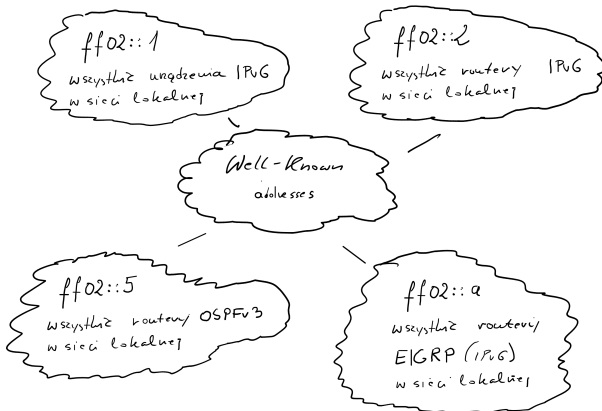 ff02::1
wszystkie urządzenia IPv6
w sieci lokalnej
ff02::2
wszystkie routery IPv6
w sieci lokalnej
Well-Known
addresses
ff02::5
wszystkie routery OSPFv3
w sieci lokalnej
ff02::a
wszystkie routery
EIGRP (IPv6)
w sieci lokalnej